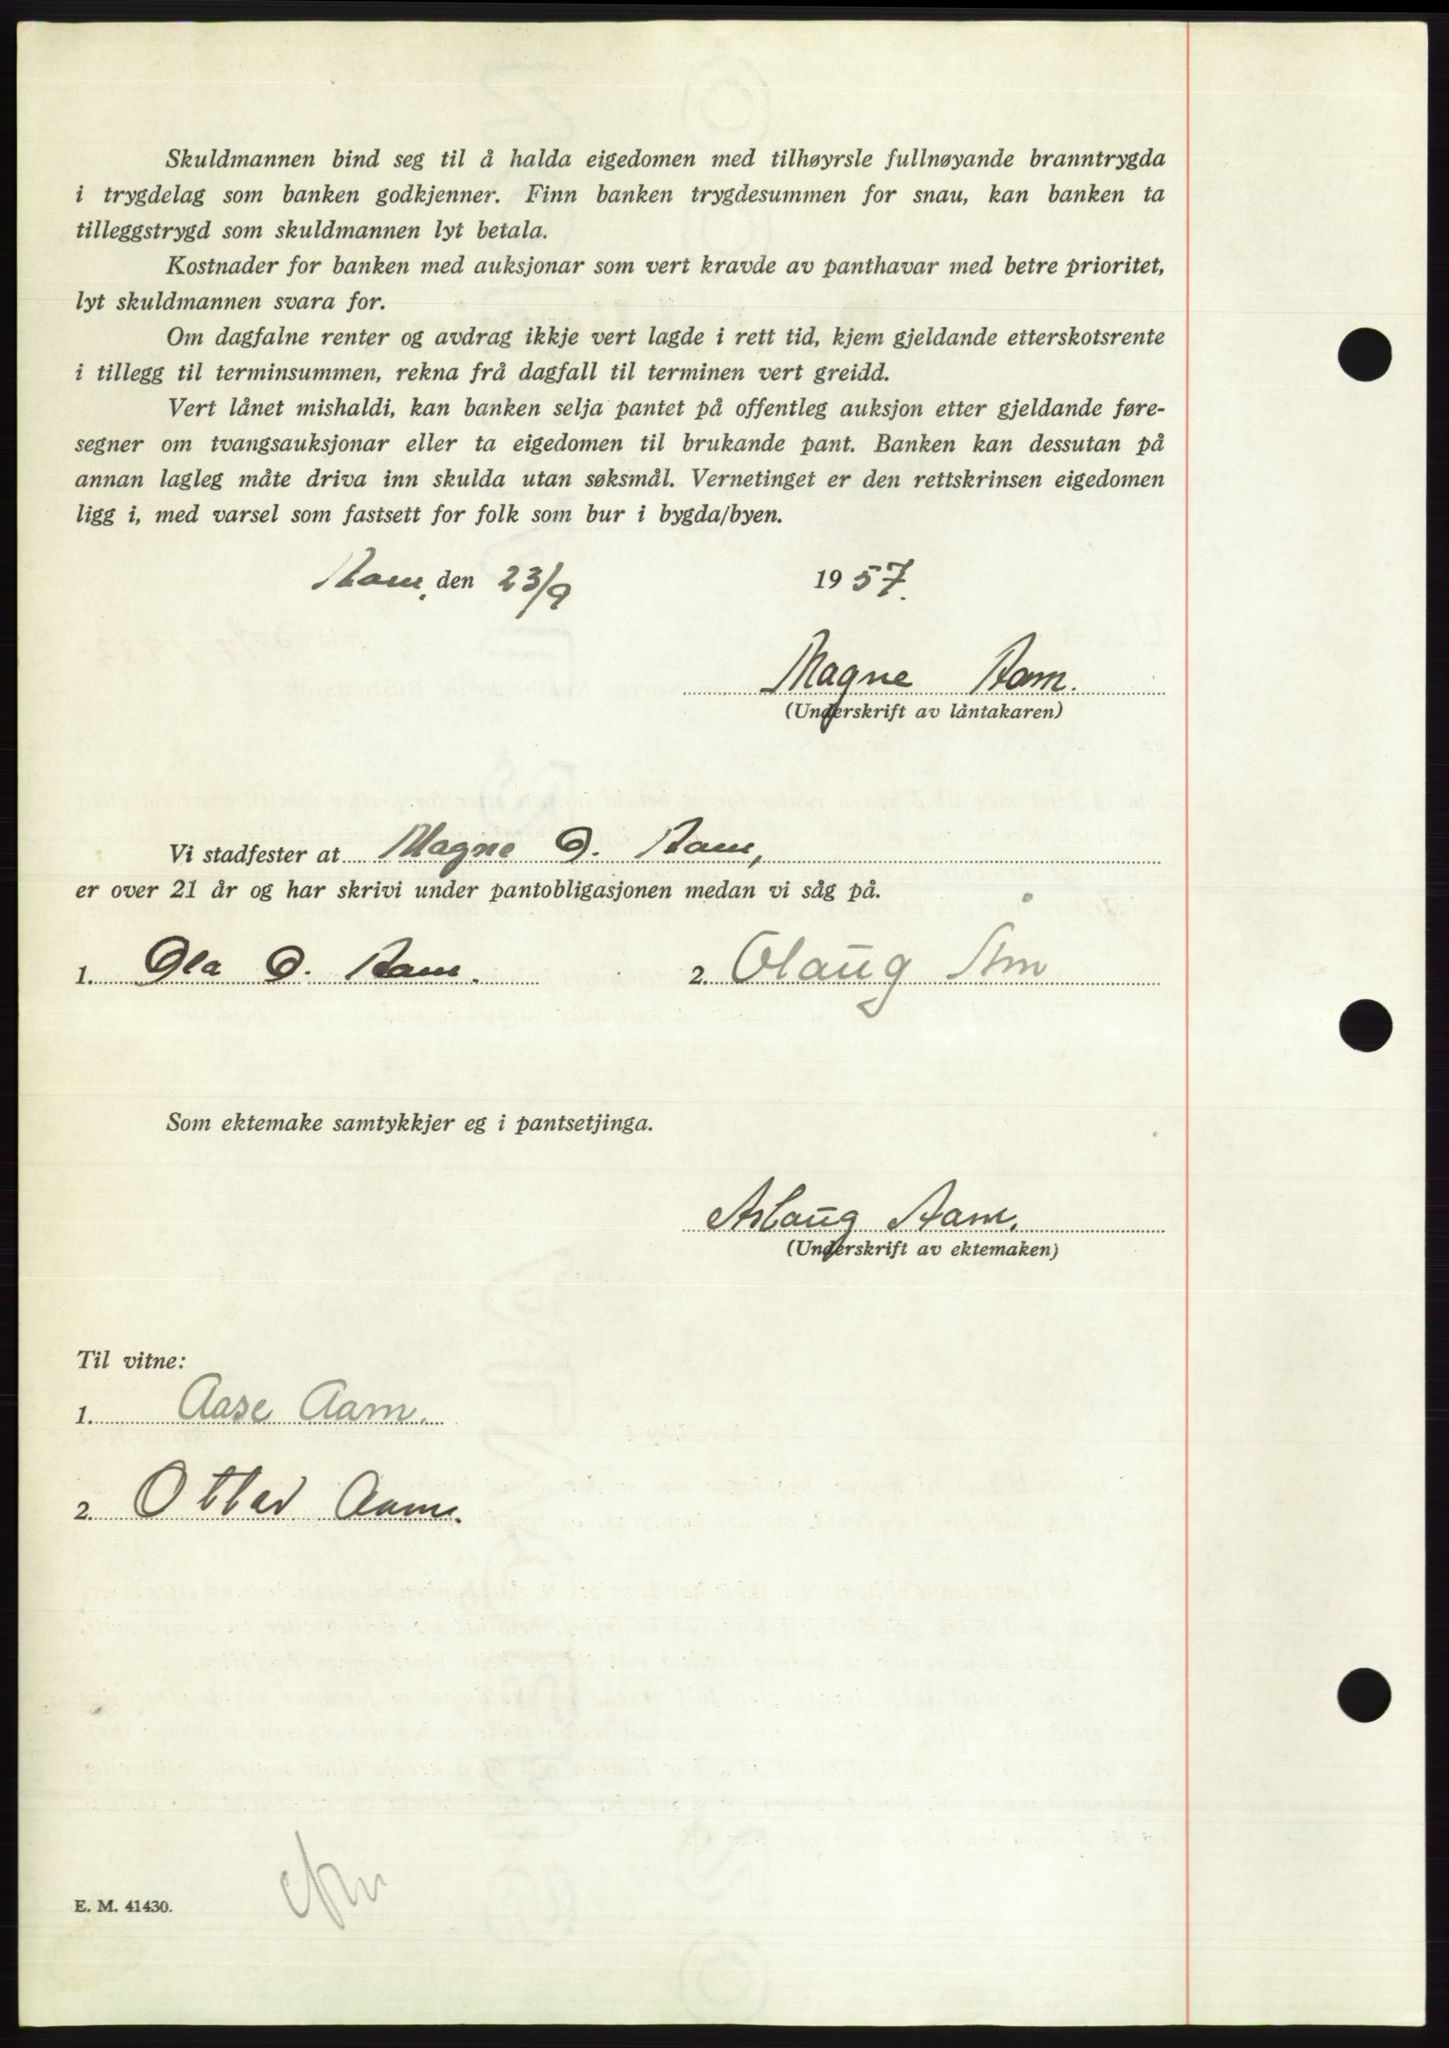 Skuldmannen bind seg til å halda eigedomen med tilhøyrsle fullnøyande branntrygda
i trygdelag som banken godkjenner. Finn banken trygdesummen for snau, kan banken ta
tilleggstrygd som skuldmannen lyt betala.
Kostnader for banken med auksjonar som vert kravde av panthavar med betre prioritet,
lyt skuldmannen svara for.
Om dagfalne renter og avdrag ikkje vert lagde i rett tid, kjem gjeldande etterskotsrente
i tillegg til terminsummen, rekna frå dagfall til terminen vert greidd.
Vert lånet mishaldi, kan banken selja pantet på offentleg auksjon etter gjeldande føre-
segner om tvangsauksjonar eller ta eigedomen til brukande pant. Banken kan dessutan på
annan lagleg måte driva inn skulda utan søksmål. Vernetinget er den rettskrinsen eigedomen
ligg i, med varsel som fastsett for folk som bur i bygda/byen.
Aam, den 23/9 1957.
Magne Aam.
(Underskrift av låntakaren)
Vi stadfester at Magne O. Aam,
er over 21 år og har skrivi under pantobligasjonen medan vi såg på.
1. Ola O. Aam. 2. Olaug Åm
Som ektemake samtykkjer eg i pantsetjinga.
Aslaug Aam.
(Underskrift av ektemaken)
Til vitne:
1. Aase Aam.
2. Ottar Aam.
E. M. 41430.